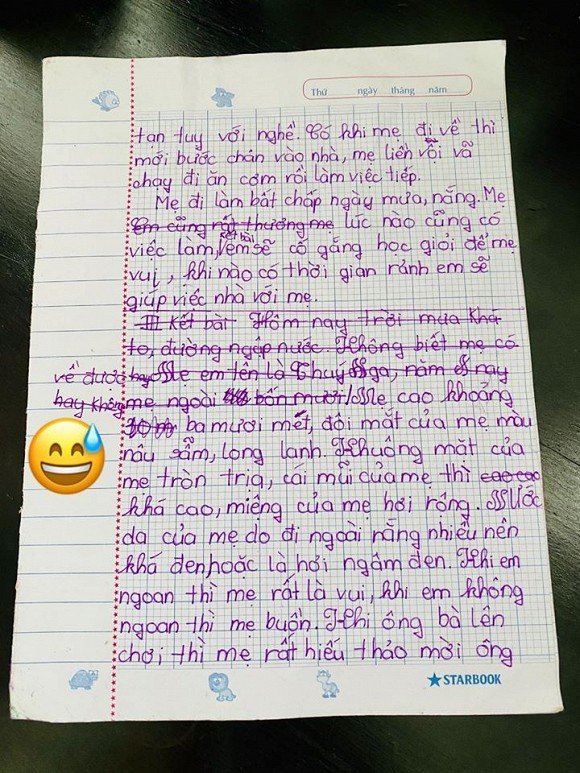 Thứ ngày tháng năm
tạn tụy với nghề. Có khi mẹ đi về thì
mới bước chân vào nhà, mẹ liền vỗi vã
chạy đi ăn cơm rồi làm việc tiếp.
Mẹ đi làm bất chấp ngày mưa, nắng. Mẹ
Em cũng rất thương mẹ lúc nào cũng có
kết bài
việc làm, em sẽ cố gắng học giỏi để mẹ
vui, khi nào có thời gian rảnh em sẽ
giúp việc nhà với mẹ.
III Kết bài Hôm nay trời mưa khá
to, đường ngập nước. Không biết mẹ có
về được Mẹ em tên là Thuy Nga, năm nay
hay không mẹ ngoài bốn mươi. Mẹ cao khoảng
ba mươi mét, đôi mắt của mẹ màu
nâu sẫm, long lanh. Khuông mặt của
mẹ tròn trịa, cái mũi của mẹ thì cao cao
khá cao, miệng của mẹ hơi rống. Nước
da của mẹ do đi ngoài nắng nhiều nên
khá đen, hoặc là hơi ngâm đen. Khi em
ngoan thì mẹ rất là vui, khi em không
ngoan thì mẹ buồn. Khi ông bà lên
chơi thì mẹ rất hiếu thảo mời ông
STARBOOK